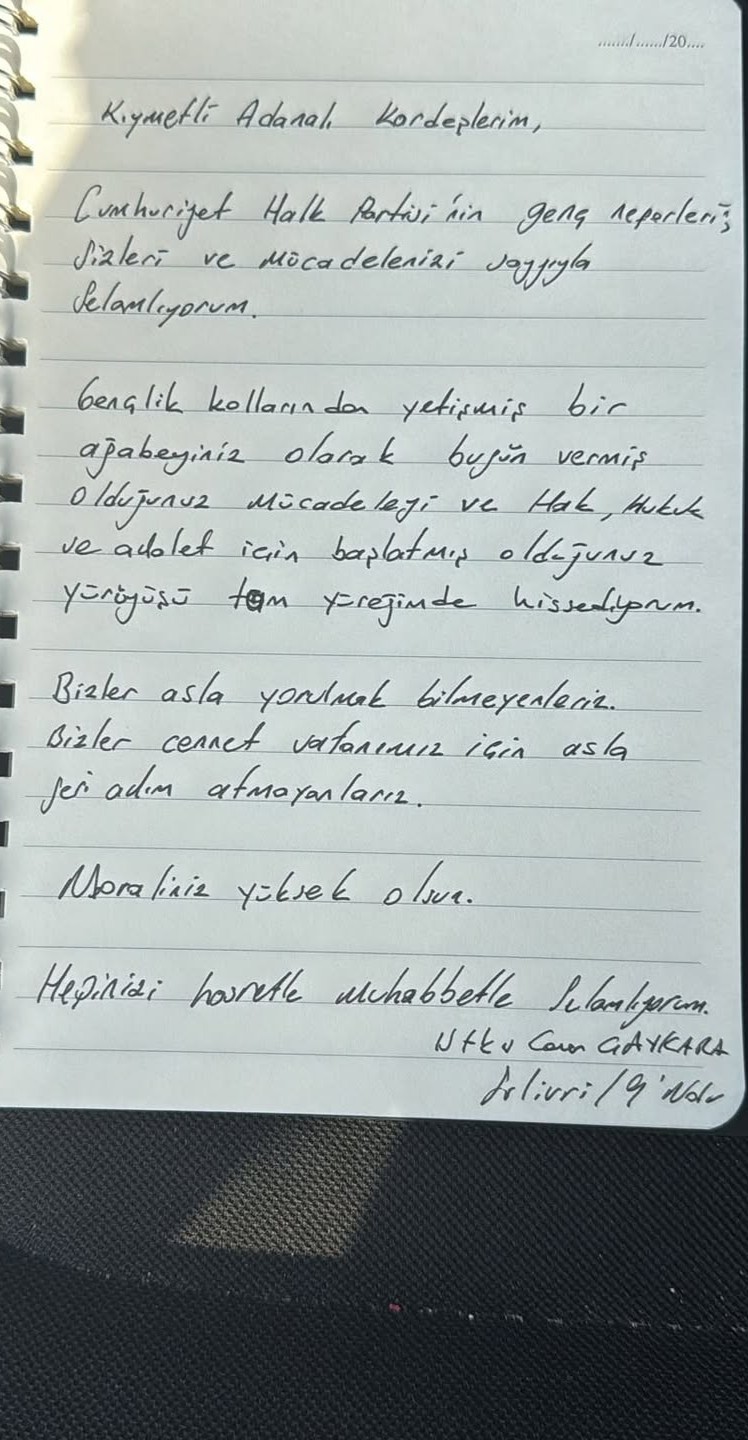 ....../....../20....
Kıymetli Adanalı Kardeşlerim,
Cumhuriyet Halk Partisi'nin genç neferleri;
Sizleri ve mücadelenizi saygıyla
Selamlıyorum.
Gençlik kollarından yetişmiş bir
ağabeyiniz olarak bugün vermiş
olduğunuz mücadeleyi ve Hak, Hukuk
ve adalet için başlatmış olduğunuz
yürüyüşü tam yüreğimde hissediyorum.
Bizler asla yorulmak bilmeyenleriz.
Bizler cennet vatanımız için asla
geri adım atmayanlarız.
Moraliniz yüksek olsun.
Hepinizi hasretle muhabbetle Selamlıyorum.
Utku Caner ÇAYKARA
Silivri/9 Nolu